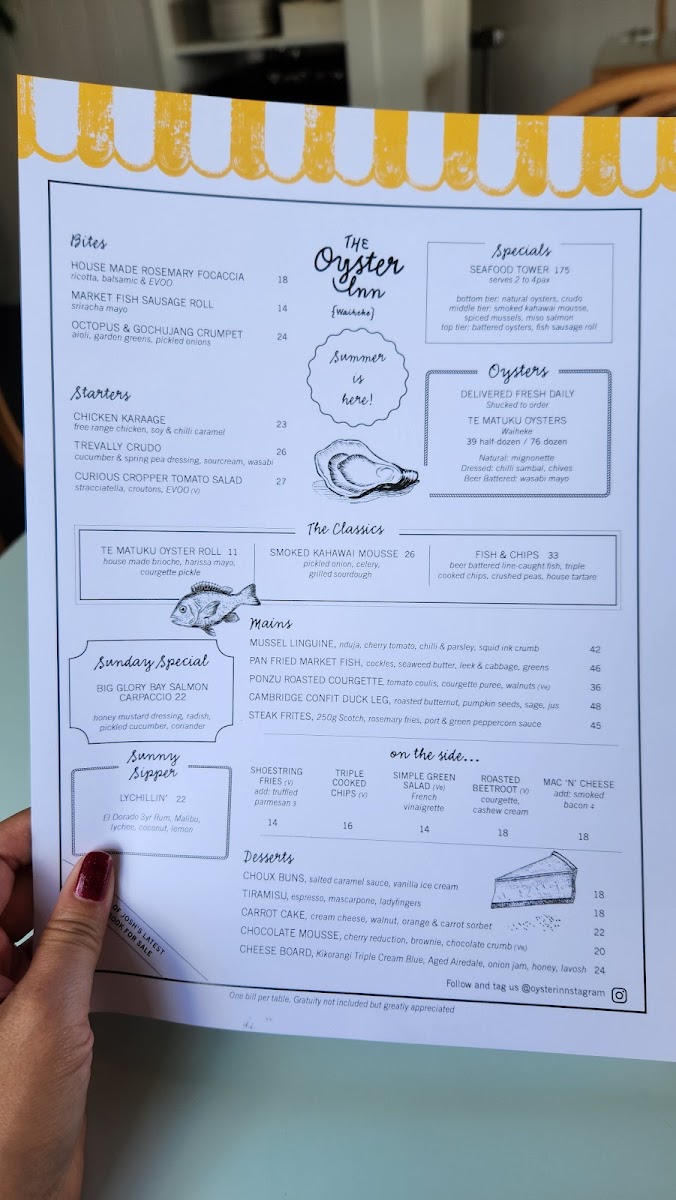 Bites
HOUSE MADE ROSEMARY FOCACCIA 18
ricotta, balsamic & EVOO
MARKET FISH SAUSAGE ROLL 14
sriracha mayo
OCTOPUS & GOCHUJANG CRUMPET 24
aioli, garden greens, pickled onions
Starters
CHICKEN KARAAGE 23
free range chicken, soy & chilli caramel
TREVALLY CRUDO 26
cucumber & spring pea dressing, sourcream, wasabi
CURIOUS CROPPER TOMATO SALAD 27
stracciatella, croutons, EVOO (V)
THE
Oyster
Inn
{Waiheke}
Summer
is
here!
Specials
SEAFOOD TOWER 175
serves 2 to 4pax
bottom tier: natural oysters, crudo
middle tier: smoked kahawai mousse,
spiced mussels, miso salmon
top tier: battered oysters, fish sausage roll
Oysters
DELIVERED FRESH DAILY
Shucked to order
TE MATUKU OYSTERS
Waiheke
39 half-dozen / 76 dozen
Natural: mignonette
Dressed: chilli sambal, chives
Beer Battered: wasabi mayo
The Classics
TE MATUKU OYSTER ROLL 11
house made brioche, harissa mayo,
courgette pickle
SMOKED KAHAWAI MOUSSE 26
pickled onion, celery,
grilled sourdough
FISH & CHIPS 33
beer battered line-caught fish, triple
cooked chips, crushed peas, house tartare
Sunday Special
BIG GLORY BAY SALMON
CARPACCIO 22
honey mustard dressing, radish,
pickled cucumber, coriander
Sunny
Sipper
LYCHILLIN' 22
El Dorado 3yr Rum, Malibu,
lychee, coconut, lemon
Mains
MUSSEL LINGUINE, nduja, cherry tomato, chilli & parsley, squid ink crumb 42
PAN FRIED MARKET FISH, cockles, seaweed butter, leek & cabbage, greens 46
PONZU ROASTED COURGETTE, tomato coulis, courgette puree, walnuts (Ve) 36
CAMBRIDGE CONFIT DUCK LEG, roasted butternut, pumpkin seeds, sage, jus 48
STEAK FRITES, 250g Scotch, rosemary fries, port & green peppercorn sauce 45
on the side...
SHOESTRING
FRIES (V)
add: truffled
parmesan 3
14
TRIPLE
COOKED
CHIPS (V)
16
SIMPLE GREEN
SALAD (Ve)
French
vinaigrette
14
ROASTED
BEETROOT (V)
courgette,
cashew cream
18
MAC 'N' CHEESE
add: smoked
bacon 4
18
Desserts
CHOUX BUNS, salted caramel sauce, vanilla ice cream 18
TIRAMISU, espresso, mascarpone, ladyfingers 18
CARROT CAKE, cream cheese, walnut, orange & carrot sorbet 22
CHOCOLATE MOUSSE, cherry reduction, brownie, chocolate crumb (Ve) 20
CHEESE BOARD, Kikorangi Triple Cream Blue, Aged Airedale, onion jam, honey, lavosh 24
OF JOSH'S LATEST
BOOK FOR SALE
Follow and tag us @oysterinnstagram
One bill per table. Gratuity not included but greatly appreciated